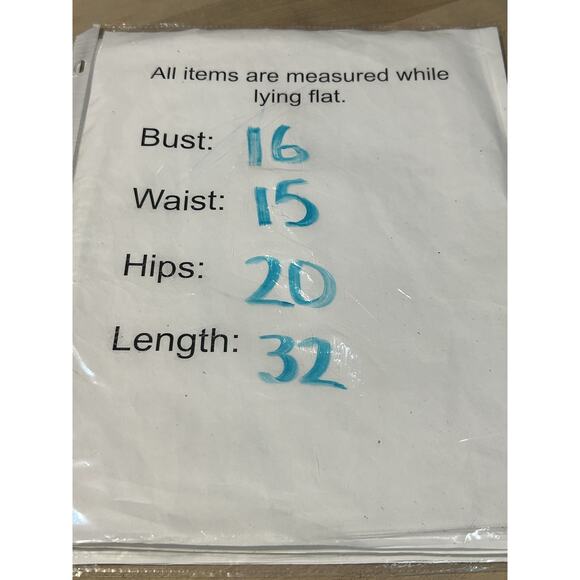 All items are measured while
lying flat.
Bust: 16
Waist: 15
Hips: 20
Length: 32